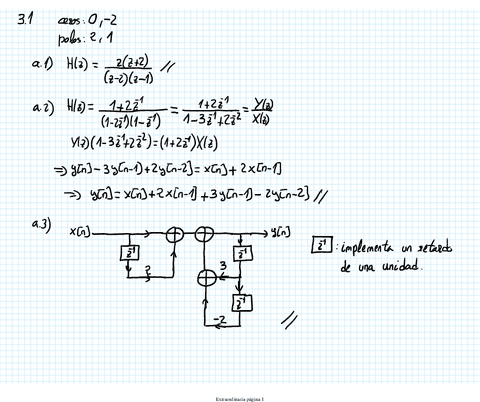 3.1 ceros: 0, -2
polos: 2, 1
a.1) H(z) = z(z+2) / (z-2)(z-1) //
a.2) H(z) = 1+2z⁻¹ / (1-2z⁻¹)(1-z⁻¹) = 1+2z⁻¹ / 1-3z⁻¹+2z⁻² = Y(z) / X(z)
Y(z)(1-3z⁻¹+2z⁻²) = (1+2z⁻¹)X(z)
⇒ y[n] - 3y[n-1] + 2y[n-2] = x[n] + 2x[n-1]
⇒ y[n] = x[n] + 2x[n-1] + 3y[n-1] - 2y[n-2] //
a.3) x[n] y[n]
z⁻¹ z⁻¹ z⁻¹ : implementa un retardo
2 3 de una unidad.
z⁻¹
-2 //
Extraordinaria página 1